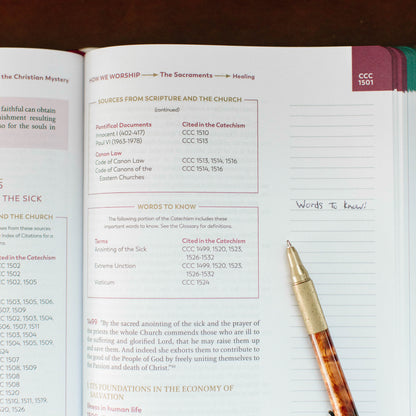 the Christian Mystery
faithful can obtain
nishment resulting
so for the souls in
THE SICK
AND THE CHURCH
Index of Citations for a
ted in the Catechism
CCC 1502
CCC 1502
CCC 1503, 1505, 1506,
1507, 1509
CCC 1508
CCC 1509
HOW WE WORSHIP → The Sacraments → Healing
CCC
1501
SOURCES FROM SCRIPTURE AND THE CHURCH
(continued)
Pontifical Documents Cited in the Catechism
Innocent I (402-417) CCC 1510
Paul VI (1963-1978) CCC 1513
Canon Law
Code of Canon Law CCC 1513, 1514, 1516
Code of Canons of the CCC 1514, 1516
Eastern Churches
WORDS TO KNOW
The following portion of the Catechism includes these
important words to know. See the Glossary for definitions.
Terms Cited in the Catechism
Anointing of the Sick CCC 1499, 1520, 1523,
1526-1532
Extreme Unction CCC 1499, 1520, 1523,
1526-1532
Viaticum CCC 1524
Words To Know!
1499 "By the sacred anointing of the sick and the prayer of
the priests the whole Church commends those who are ill to
the suffering and glorified Lord, that he may raise them up
and save them. And indeed she exhorts them to contribute to
the good of the People of God by freely uniting themselves to
the Passion and death of Christ."
I. ITS FOUNDATIONS IN THE ECONOMY OF
SALVATION
Illness in human life